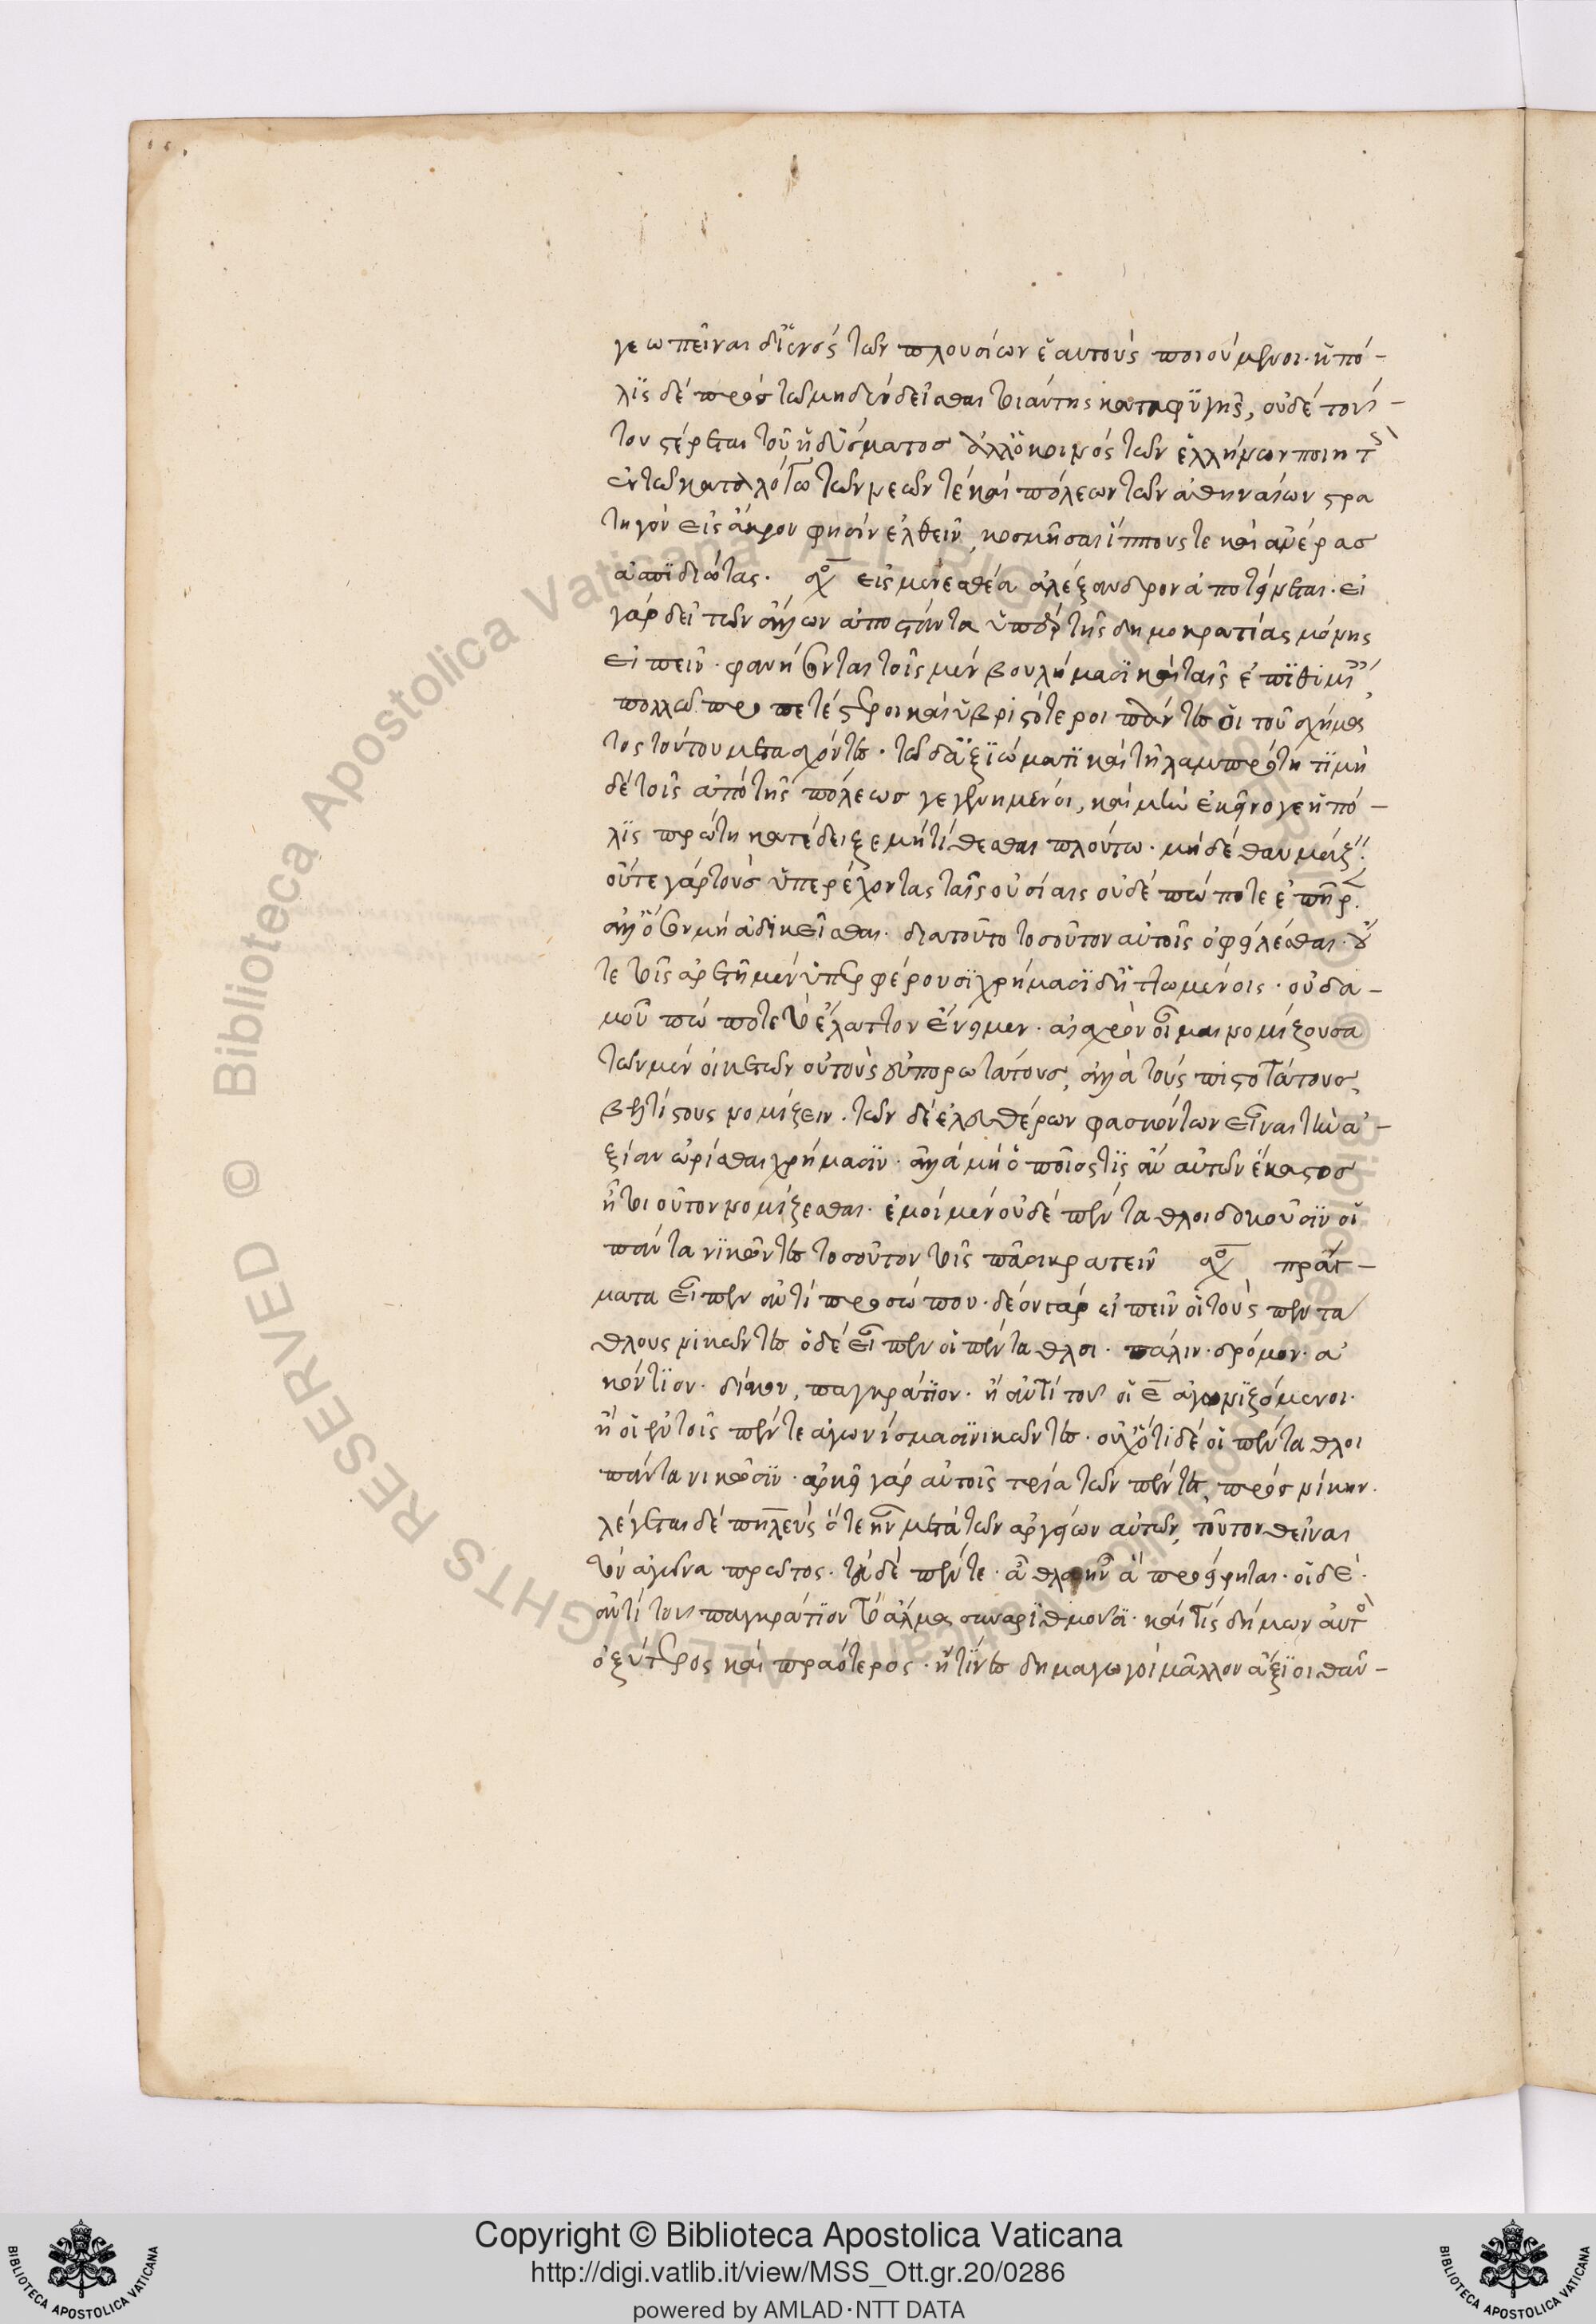 γεωπεῖναι δι' ἑνὸς τῶν πλουσίων ἑαυτοὺς ποιούμενοι· ἡ πό-
λϊς δὲ πρὸς τῶ μὴ δεῖσθαι τοιαύτης καταφϋγῆς, οὐδὲ τού-
του στέρεται τοῦ ἡδύσματος ἀλλ' ὁ κοινὸς τῶν ἑλλήνων ποιητ
ἐν τῶ καταλόγω τῶν νεῶν τὲ καὶ πόλεων τῶν ἀθηναίων στρα
τηγὸν εἰς ἄκρον φησὶν ἐλθεῖν, κοσμῆσαι ἵππους τε καὶ ἀνέρας
ἀσπϊδιώτας. εἰς μενεσθέα ἀλέξανδρον ἀποτείνεται· εἰ
γὰρ δεῖ τῶν ἄλλων ἀποστάντα ὑπὲρ τῆς δημοκρατίας μόνης
εἰπεῖν· φανήσονται τοῖς μὲν βουλήμασϊ καὶ ταῖς ἐπϊθυμί
πολλῶ προπετέστεροι καὶ ὑβριστότεροι πάντων οἱ τοῦ σχήμα
τος τούτου μετασχόντες· τῶ δ' ἀξϊώματϊ καὶ τῆ λαμπρότητϊ μὴ
δὲ τοῖς ἀπὸ τῆς πόλεως γεγενημένοι, καὶ μὴν ἐκεῖνο γε ἡ πό-
λϊς πρώτη κατέδειξε μὴ τίθεσθαι πλούτω· μηδὲ θαυμάζ
οὔτε γὰρ τοὺς ὑπερέχοντας ταῖς οὐσίαις οὐδὲ πώποτε ἐπῆρ
ἀλλ' ὅσον μὴ ἀδικεῖσθαι· διὰ τοῦτο τοσοῦτον αὐτοῖς ὀφείλεσθαι· οὔ
τε τοῖς ἀρετῆ μὲν ὑπερφέρουσϊ χρήμασϊ δ' ἡττωμένοις· οὐδα-
μοῦ πώποτε τὸ ἔλαττον ἔνειμεν· αἰσχρὸν οἶμαι νομίζουσα
τῶν μὲν οἰκετῶν οὐ τοὺς εὐπορωτάτους, ἀλλὰ τοὺς πιστοτάτους,
βελτίστους νομίζειν· τῶν δὲ ἐλευθέρων φασκόντων εἶναι τὴν ἀ-
ξίαν ὡρίσθαι χρήμασϊν· ἀλλὰ μὴ ὁποῖος τϊς ἂν αὐτῶν ἕκαστος
ἦ τοιοῦτον νομίζεσθαι· ἐμοὶ μὲν οὐδὲ πένταθλοι δοκοῦσϊν οἱ
πάντα νϊκῶντες τοσοῦτον τοῖς πᾶσι κρατεῖν πράγ-
ματα εἶπεν ἀντὶ προσώπου· δέον γὰρ εἰπεῖν οἱ τοὺς πεντα
θλους νικῶντες ὁ δὲ εἶπεν οἱ πένταθλοι· πάλιν· δρόμον· ἀ
κόντϊον· δίσκον, παγκράτϊον· ἢ ἀντὶ τοῦ οἱ ε ἀγωνϊζόμενοι·
ἢ οἱ ἐν τοῖς πέντε ἀγωνίσμασϊ νικῶντες· οὐχ' ὅτι δὲ οἱ πένταθλοι
πάντα νικῶσϊν· ἀρκεῖ γὰρ αὐτοῖς τρία τῶν πέντε, πρὸς νίκην·
λέγεται δὲ πηλεὺς ὅτε ἦν μετὰ τῶν ἀργείων αὐτῶν, τοῦτον θεῖναι
τὸν ἀγῶνα πρῶτος· τὰ δὲ πέντε· ἆθλα ἦν ἃ προείρηται· οἱ δὲ·
ἀντὶ τοῦ παγκράτϊον τὸ ἅλμα συναρϊθμοῦσϊ· καὶ τίς δήμων αὐτ
ὀξύτερος καὶ πραότερος· ἢ τίνες δημαγωγοὶ μᾶλλον ἄξϊοι θαυ-
Copyright © Biblioteca Apostolica Vaticana
http://digi.vatlib.it/view/MSS_Ott.gr.20/0286
powered by AMLAD·NTT DATA
BIBLIOTECA APOSTOLICA VATICANA
BIBLIOTECA APOSTOLICA VATICANA
© Biblioteca Apostolica Vaticana ALL RIGHTS RESERVED © Biblioteca Apostolica Vaticana ALL RIGHTS RESERVED